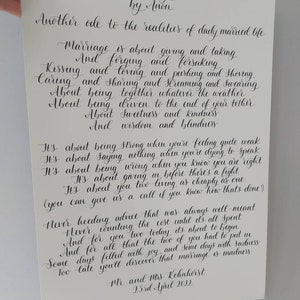 by Anon
Another ode to the realities of daily married life
Marriage is about giving and taking
And forging and forsaking
Kissing and loving and pushing and shoving
Caring and sharing and screaming and swearing
About being together whatever the weather
About being driven to the end of your tether
About sweetness and kindness
And wisdom and blindness
It's about being strong when you're feeling quite weak
It's about saying nothing when you're dying to speak
It's about being wrong when you know you are right
It's about giving in before there's a fight
It's about you two living as cheaply as one
(you can give us a call if you know how that's done!)
Never heeding advice that was always well meant
Never counting the cost until it's all spent
And for you two today it's about to begin
And for all that the two of you had to put in
Some days filled with joy and some days with sadness
Too late you'll discover that marriage is madness
Mr and Mrs
23rd April 2022